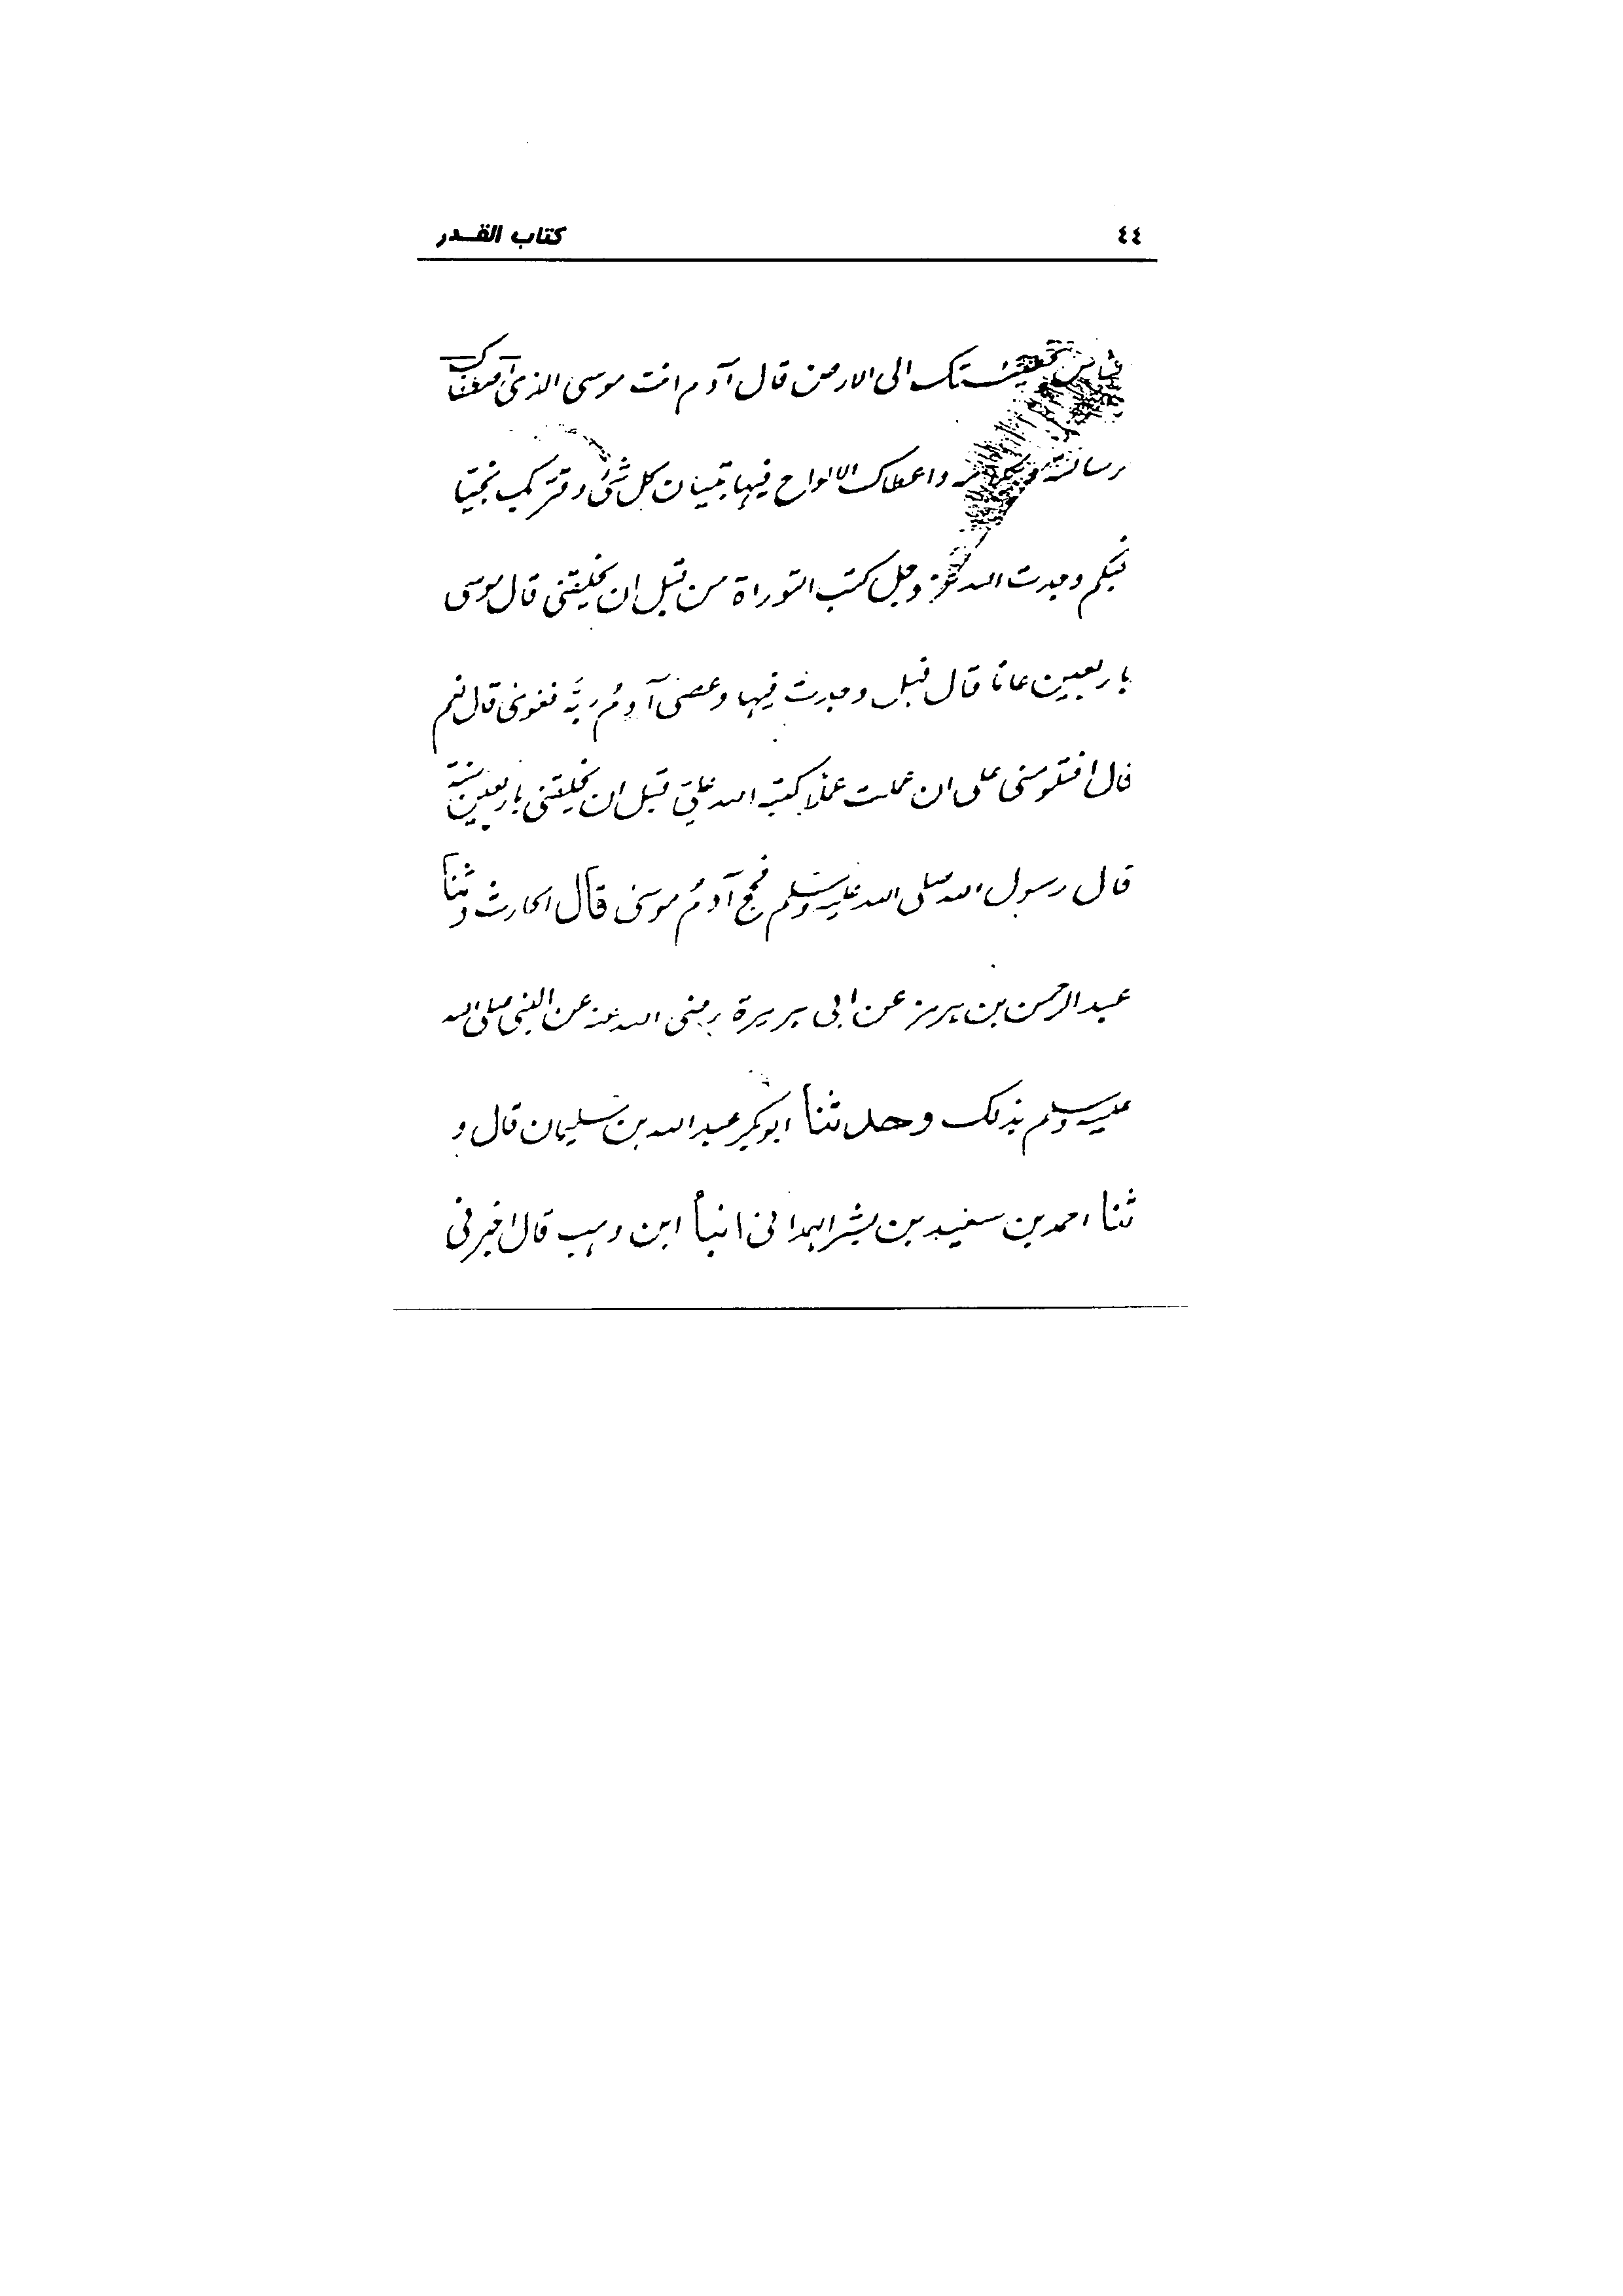 ٤٤
كتاب القـــدر
الناس بخطيئتك الى الارض قال آدم انت موسى الذى اصطفاك
برسالته وبكلامه واعطاك الالواح فيها تبيان كل شئ وقربك نجيّا
فبكم وجدت الله عز وجل كتب التوراة من قبل ان يخلقنى قال موسى
باربعين عامًا قال فهل وجدت فيها وعصى آدمُ ربَّه فغوى قال نعم
قال افتلومنى على ان عملت عملًا كتبه الله علىّ قبل ان يخلقنى باربعين سنة
قال رسول الله صلى الله عليه وسلم فحج آدمُ موسى قال الحارث وثنا
عبد الرحمن بن هرمز عن ابى هريرة رضى الله عنه عن النبى صلى الله
عليه وسلم بذلك وحدثنا ابو بكر عبد الله بن سليمان قال و
ثنا احمد بن سعيد بن بشر الهمدانى انبأ ابن وهب قال اخبرنى